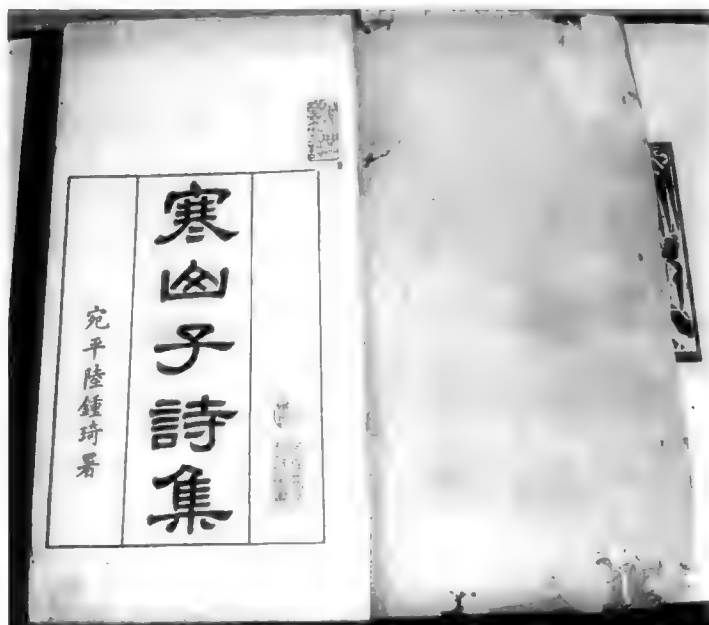 寒山子詩集
宛平陸鍾琦署